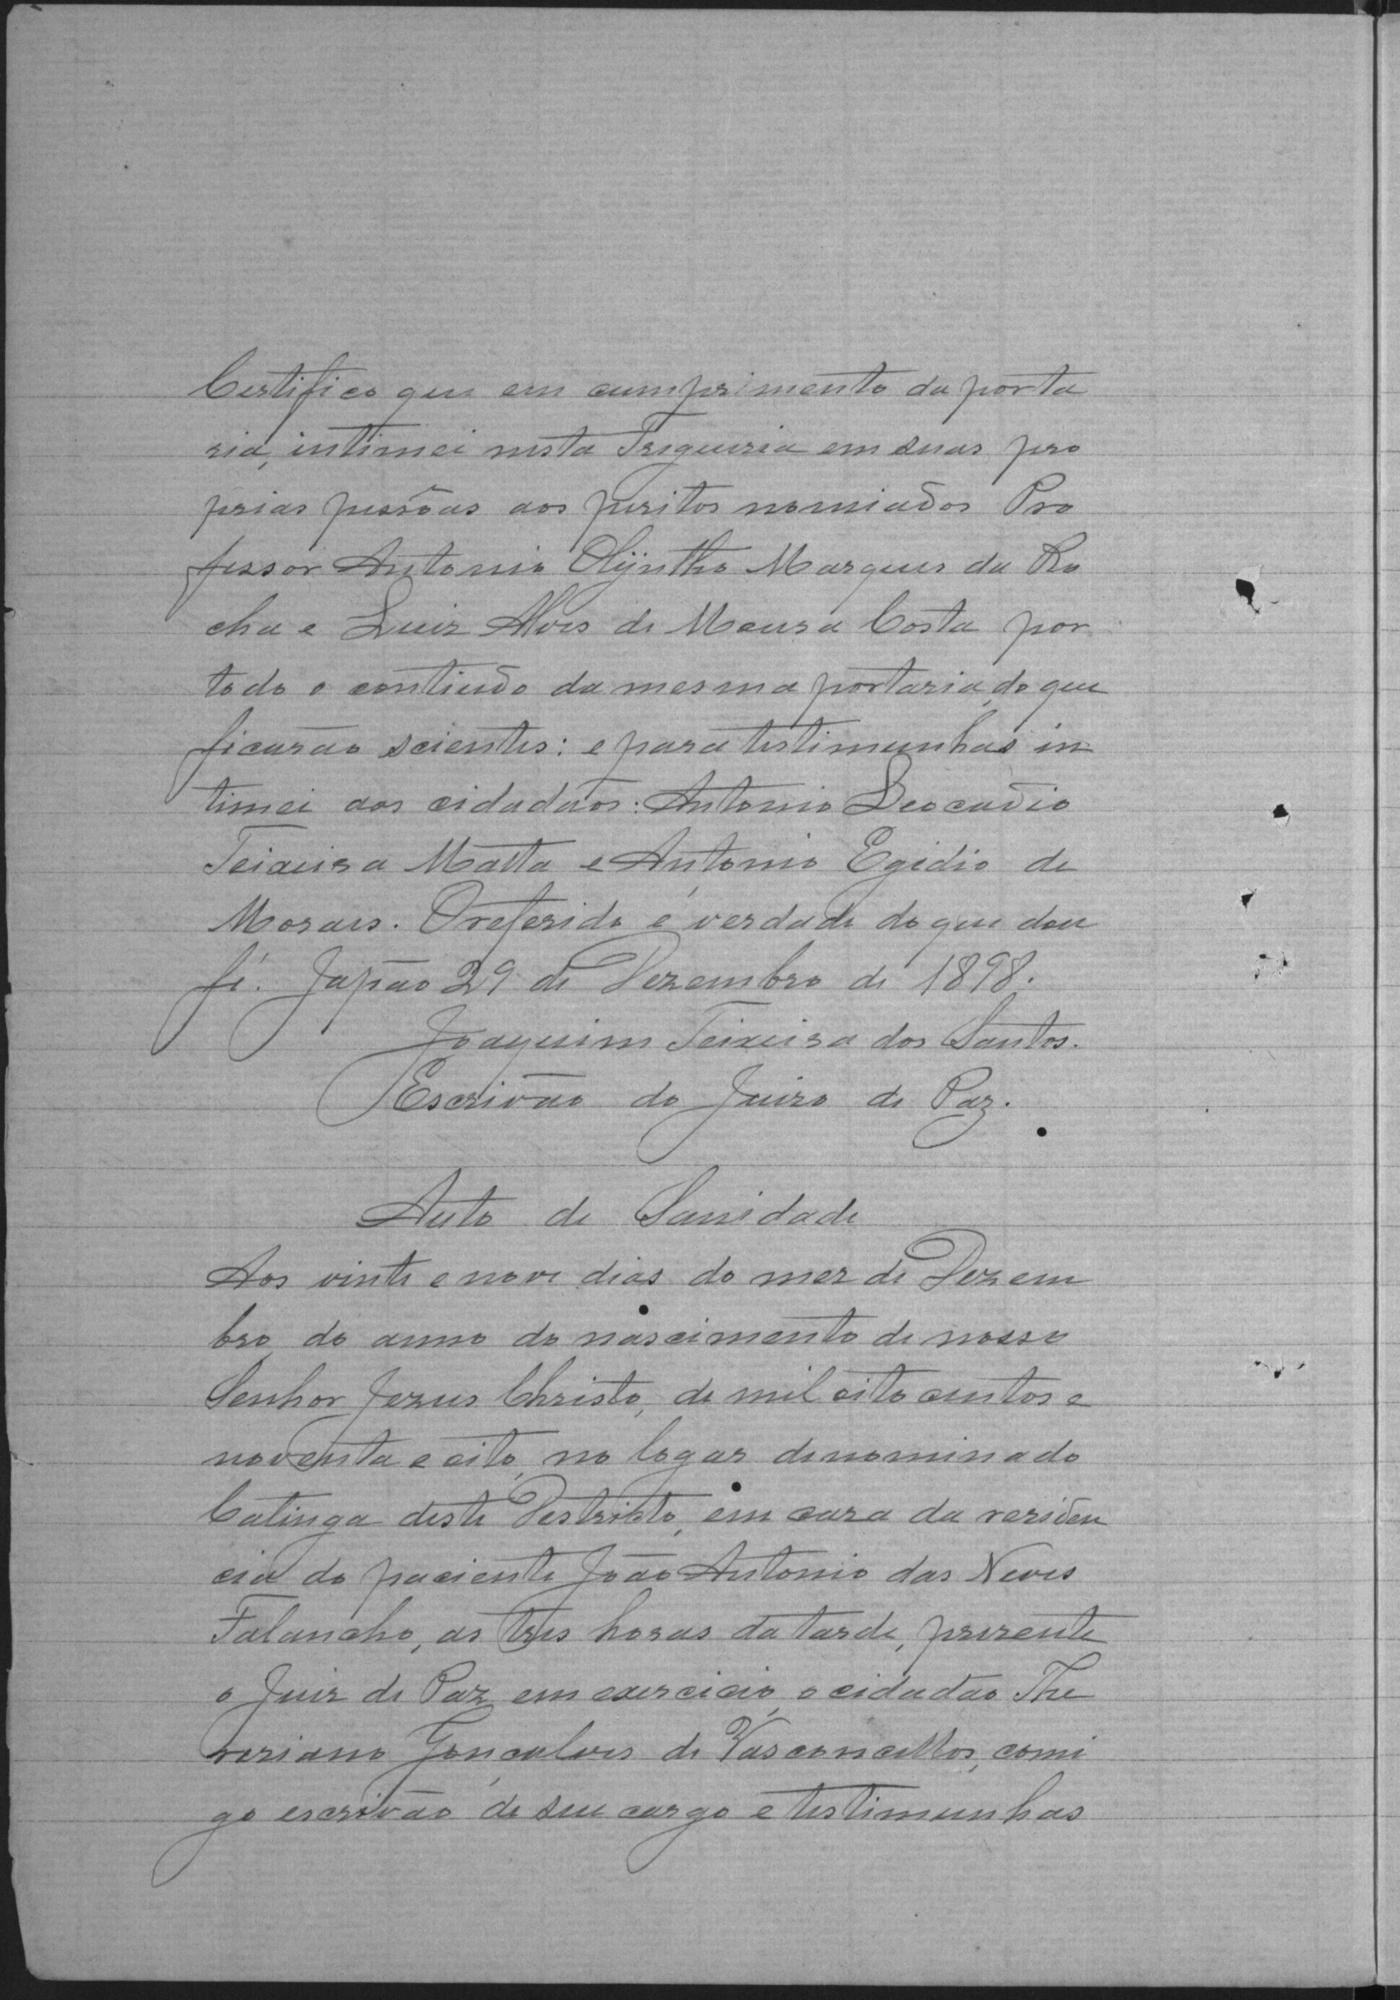 Certifico que em cumprimento da porta
ria, intimei nesta Fregueria em suas pro
prias pessôas aos peritos nomiados Pro
fessor Antonio Olÿntho Marques da Ro
cha e Luiz Alves de Moura Costa por
todo o contiudo da mesma portaria, do que
ficarão scientes: e para testimunhas in
timei aos cidadãos: Antonio Leocadio
Teixeira Matta e Antonio Egidio de
Moraes. O referido é verdade do que dou
fé. Japão 29 de Dezembro de 1898.
Joaquim Teixeira dos Santos.
Escrivão do Juizo de Paz.
Auto de Sanidade
Aos vinte e nove dias do mez de Dezem
bro do anno do nascimento de nosso
Senhor Jezus Christo, de mil oito centos e
noventa e oito, no logar denominado
Catinga deste Destricto, em caza da reziden
cia do paciente João Antonio das Neves
Falancho, as tres horas da tarde, prezente
o Juiz de Paz em exercicio, o cidadão The
reziano Gonçalves de Vasconcellos, comi
go escrivão de seu cargo e testimunhas